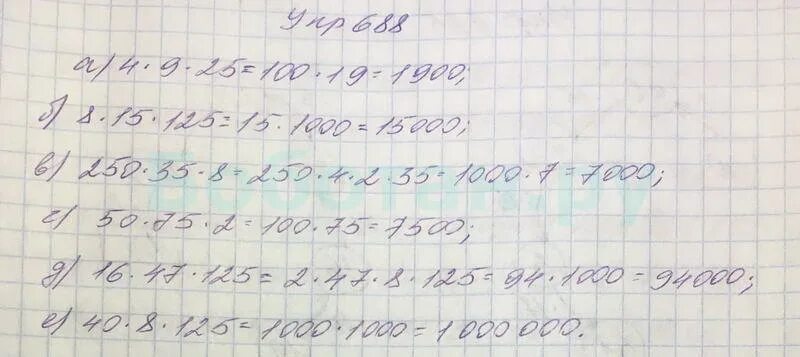 Упр 688
а) 4 · 9 · 25 = 100 · 19 = 1900;
б) 8 · 15 · 125 = 15 · 1000 = 15000;
в) 250 · 35 · 8 = 250 · 4 · 2 · 35 = 1000 · 7 = 7000;
г) 50 · 75 · 2 = 100 · 75 = 7500;
д) 16 · 47 · 125 = 2 · 47 · 8 · 125 = 94 · 1000 = 94000;
е) 40 · 8 · 125 = 1000 · 1000 = 1 000 000.